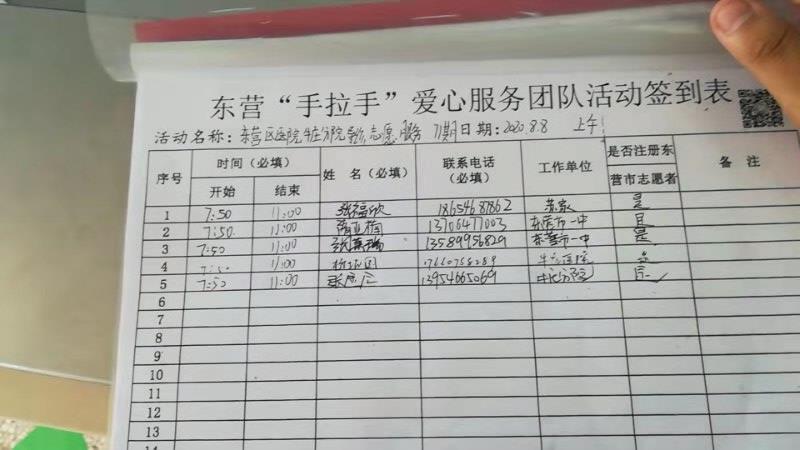 东营“手拉手”爱心服务团队活动签到表
活动名称：东营区医院牛庄分院 志愿服务 71期 日期：2020.8.8 上午
序号 时间（必填） 姓 名（必填） 联系电话（必填） 工作单位 是否注册东营市志愿者 备 注
开始 结束
1 7:50 11:00 张福欣 18654687862 是
2 7:50 11:00 13706477003 东营市一中 是
3 7:50 11:00 13589956829 东营市一中 是
4 7:50 11:00
5 7:50 11:00 13954665069 牛庄分院 是
6
7
8
9
10
11
12
13
14